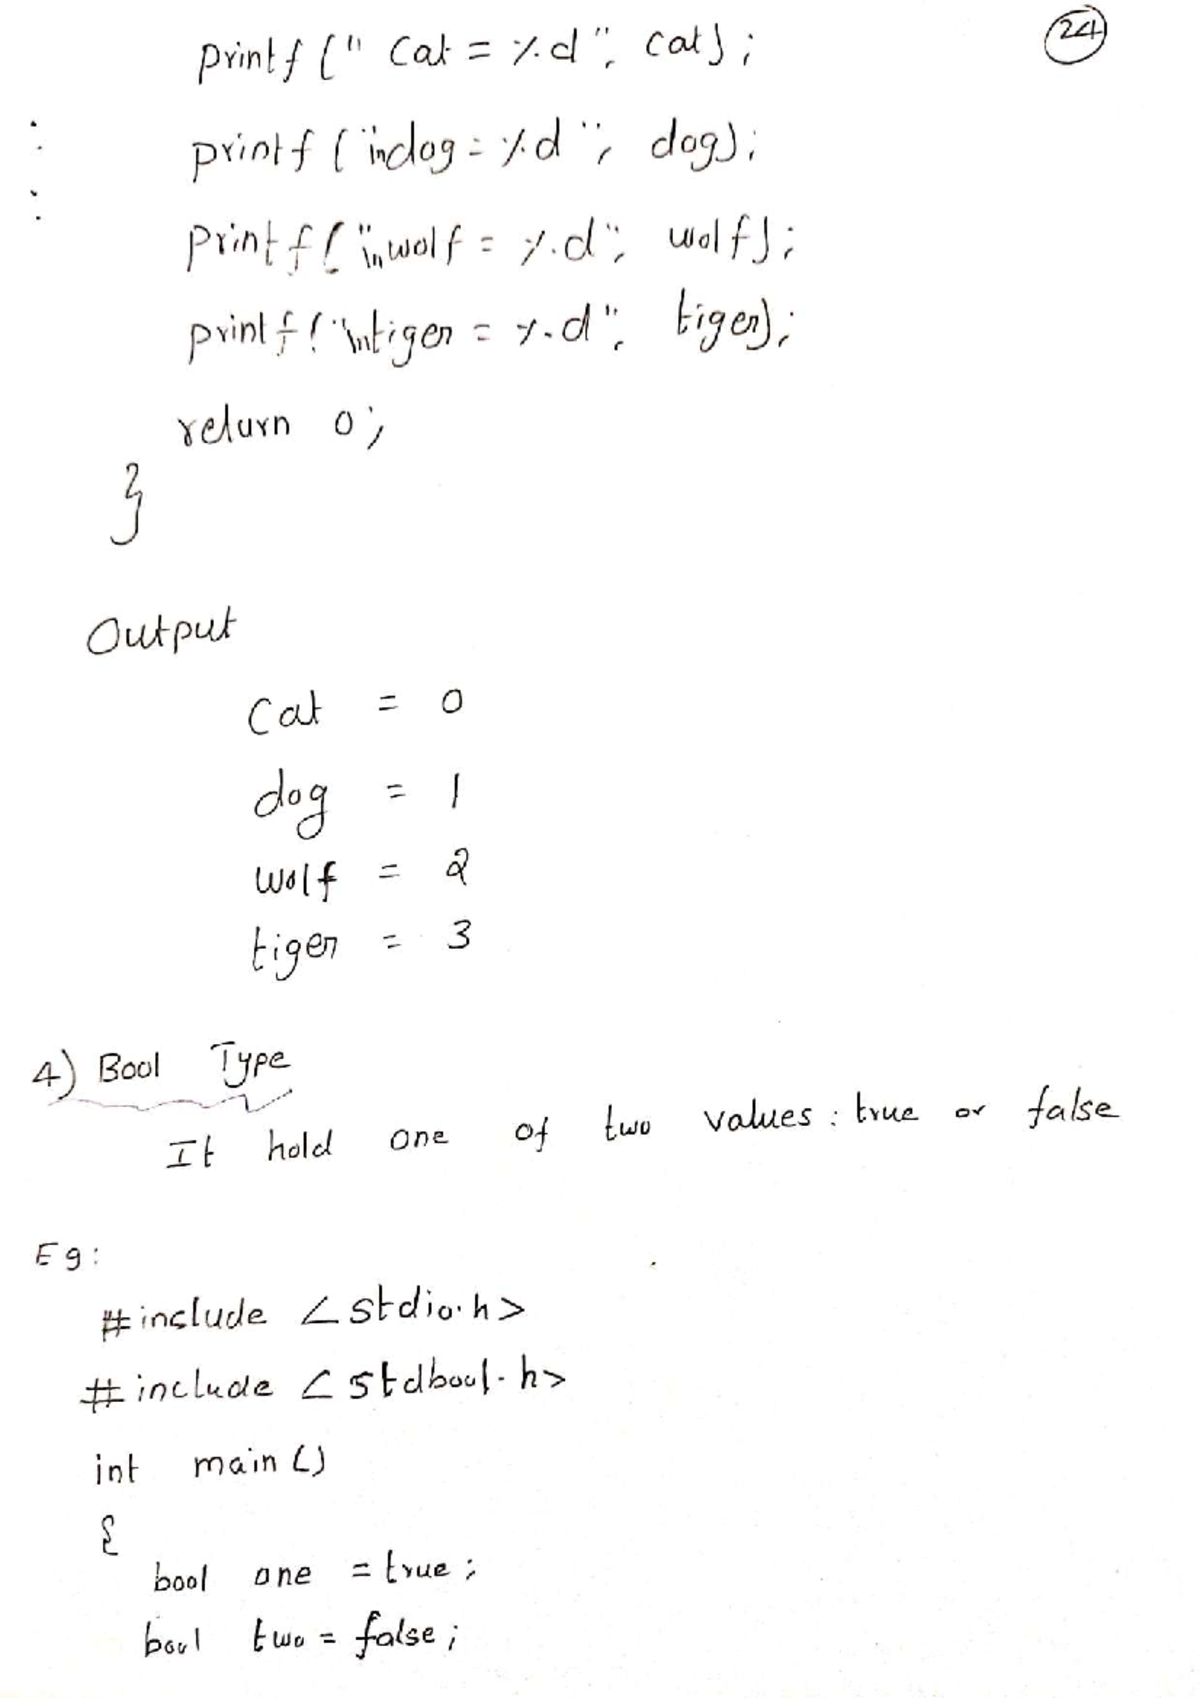 24
printf(" Cat = %d", cat);
printf("\ndog = %d", dog);
printf("\nwolf = %d", wolf);
printf("\ntiger = %d", tiger);
return 0;
}
Output
Cat = 0
dog = 1
wolf = 2
tiger = 3
4) Bool Type
It hold one of two values : true or false
Eg:
#include <stdio.h>
#include <stdbool.h>
int main()
{
bool one = true;
bool two = false;